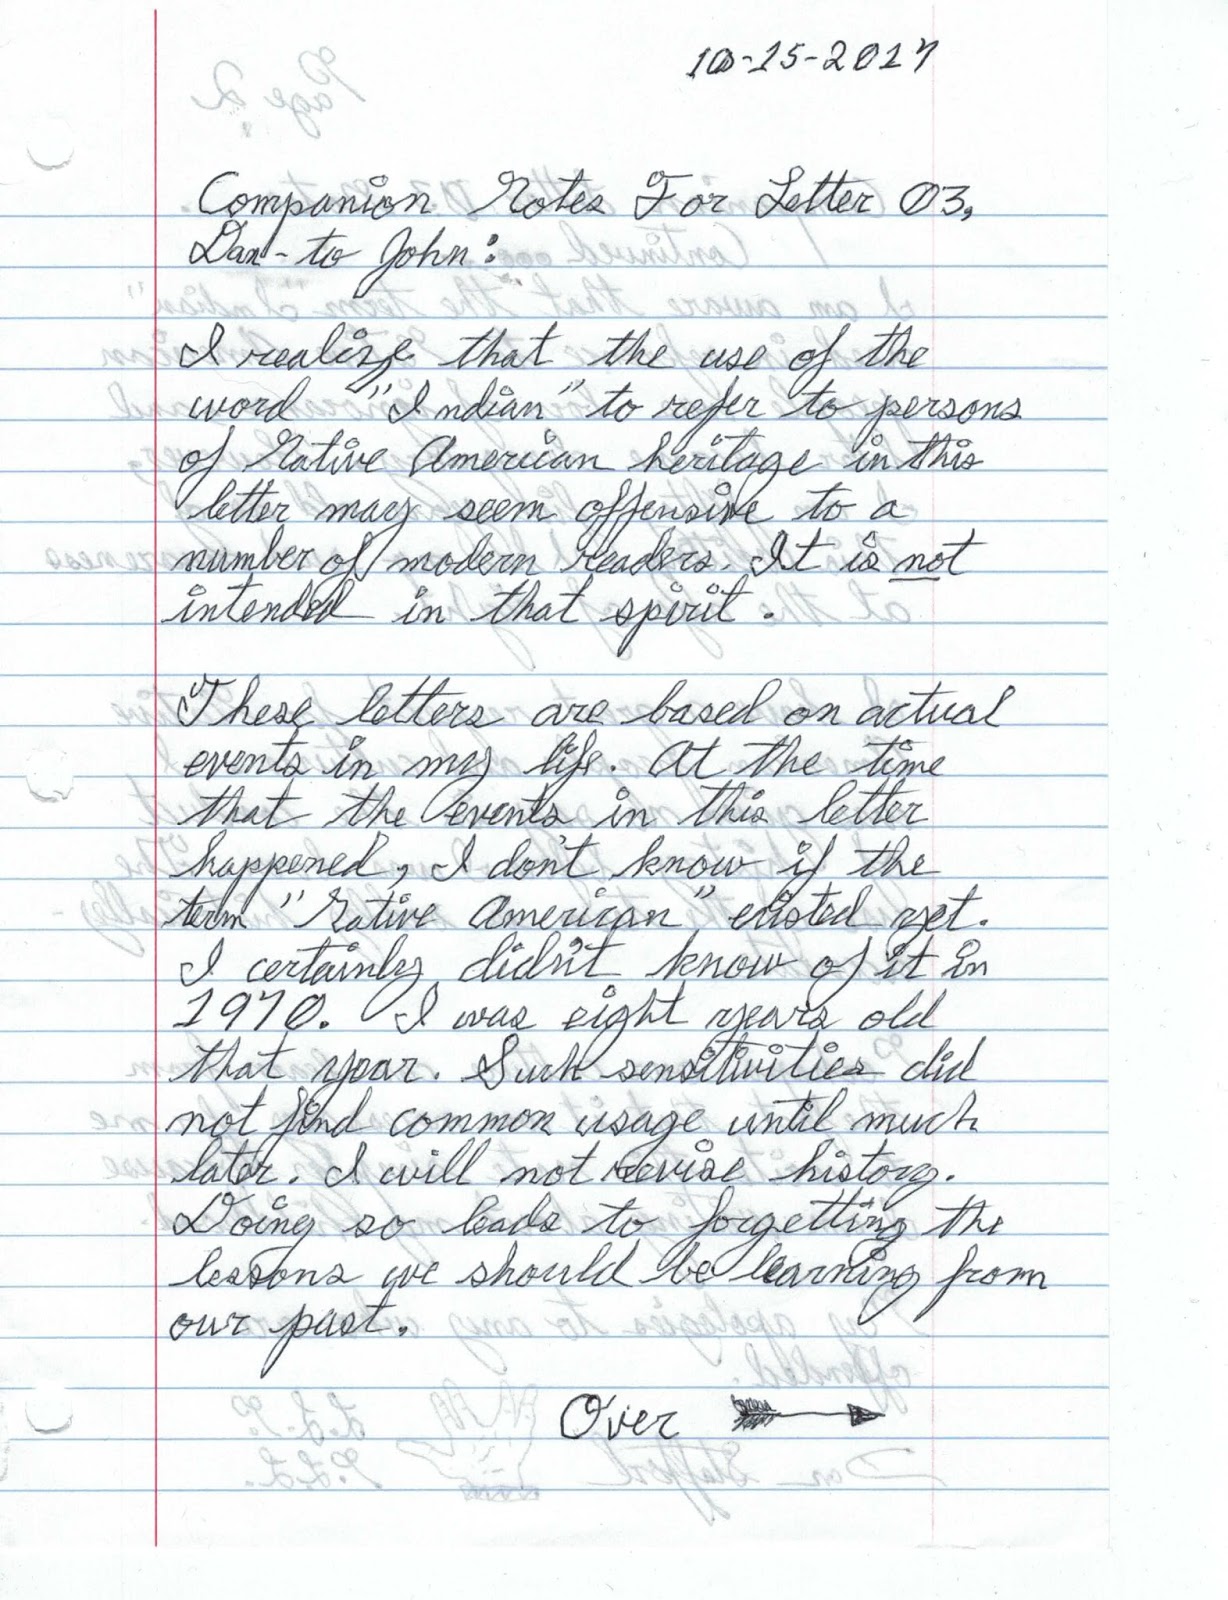 10-15-2017
Companion Notes For Letter 03,
Dan-to John:
I realize that the use of the
word "Indian" to refer to persons
of Native American heritage in this
letter may seem offensive to a
number of modern readers. It is not
intended in that spirit.
These letters are based on actual
events in my life. At the time
that the events in this letter
happened, I don't know if the
term "Native American" existed yet.
I certainly didn't know of it in
1970. I was eight years old
that year. Such sensitivities did
not find common usage until much
later. I will not revise history.
Doing so leads to forgetting the
lessons we should be learning from
our past.
Over